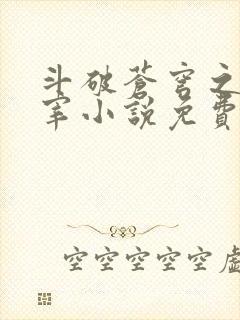 斗破蒼穹之
宰小說免費
空空空空空虛